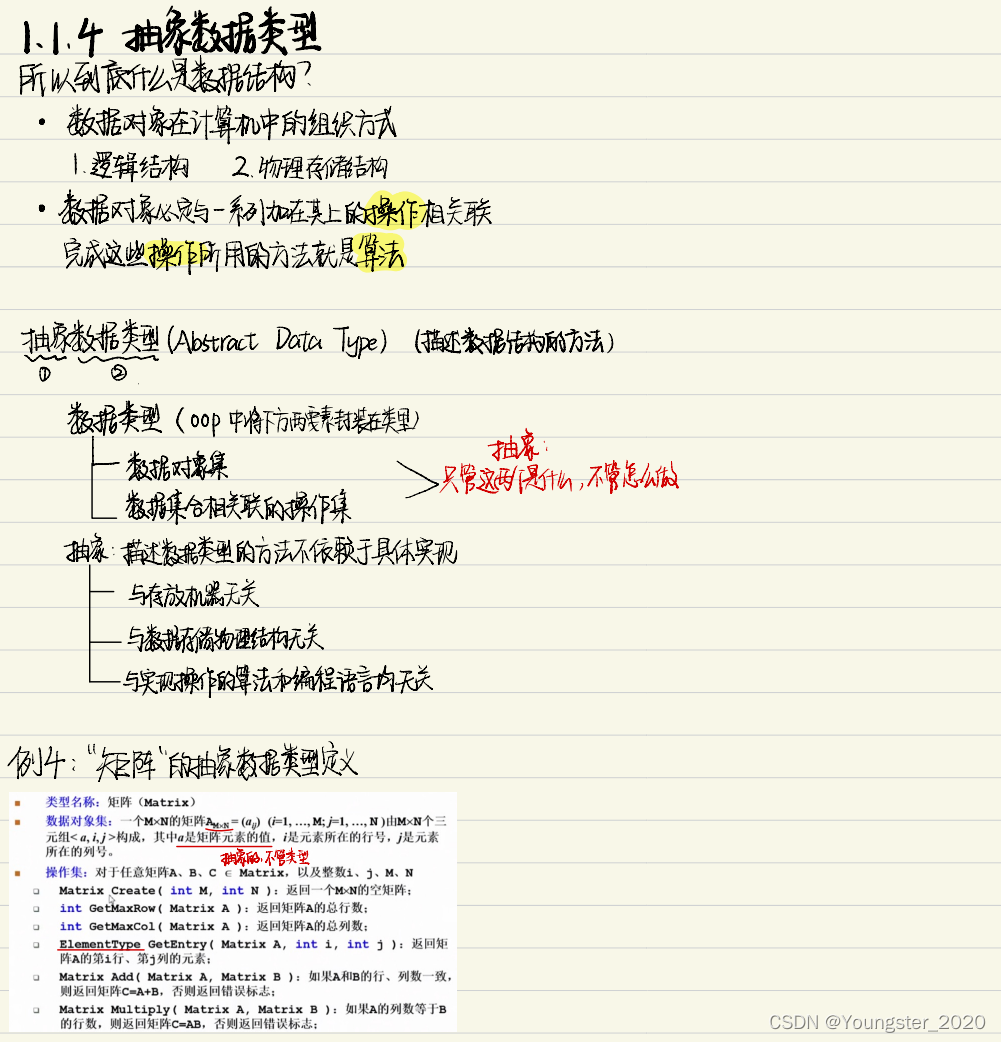 1.1.4 抽象数据类型
所以到底什么是数据结构?
• 数据对象在计算机中的组织方式
1.逻辑结构 2.物理存储结构
• 数据对象必定与一系列加在其上的操作相关联
完成这些操作所用的方法就是算法
抽象数据类型(Abstract Data Type) (描述数据结构的方法)
① ②
数据类型 (oop 中将下方两要素封装在类里)
数据对象集
数据集合相关联的操作集
抽象:
只管这两个是什么,不管怎么做
抽象:描述数据类型的方法不依赖于具体实现
与存放机器无关
与数据存储物理结构无关
与实现操作的算法和编程语言均无关
例4:“矩阵”的抽象数据类型定义
类型名称:矩阵(Matrix)
数据对象集:一个M×N的矩阵A_M×N = (a_ij) (i=1, …, M; j=1, …, N )由M×N个三
元组< a, i, j >构成,其中a是矩阵元素的值,i是元素所在的行号,j是元素
所在的列号。
抽象的,不管类型
操作集:对于任意矩阵A、B、C ∈ Matrix,以及整数i、j、M、N
Matrix Create( int M, int N ):返回一个M×N的空矩阵;
int GetMaxRow( Matrix A ):返回矩阵A的总行数;
int GetMaxCol( Matrix A ):返回矩阵A的总列数;
ElementType GetEntry( Matrix A, int i, int j ):返回矩
阵A的第i行、第j列的元素;
Matrix Add( Matrix A, Matrix B ):如果A和B的行、列数一致,
则返回矩阵C=A+B,否则返回错误标志;
Matrix Multiply( Matrix A, Matrix B ):如果A的列数等于B
的行数,则返回矩阵C=AB,否则返回错误标志;
CSDN @Youngster_2020